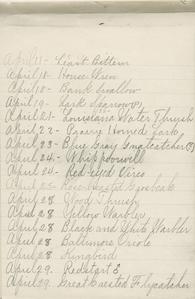 April 18 - Least Bittern
April 18 - House Wren
April 18 - Bank Swallow
April 19 - Lark Sparrow (?)
April 21 - Louisiana Water Thrush
April 22 - Prairy Horned Lark
April 23 - Blue Gray Gnatcatcher (?)
April 24 - Whippoorwill
April 24 - Red-eyed Vireo
April 25 - Rose-breasted Grosbeak
April 28 Wood Thrush
April 28 Yellow Warbler
April 28 Black and White Warbler
April 28 Baltimore Oriole
April 28 Kingbird
April 29. Redstart
April 29. Great Crested Flycatcher